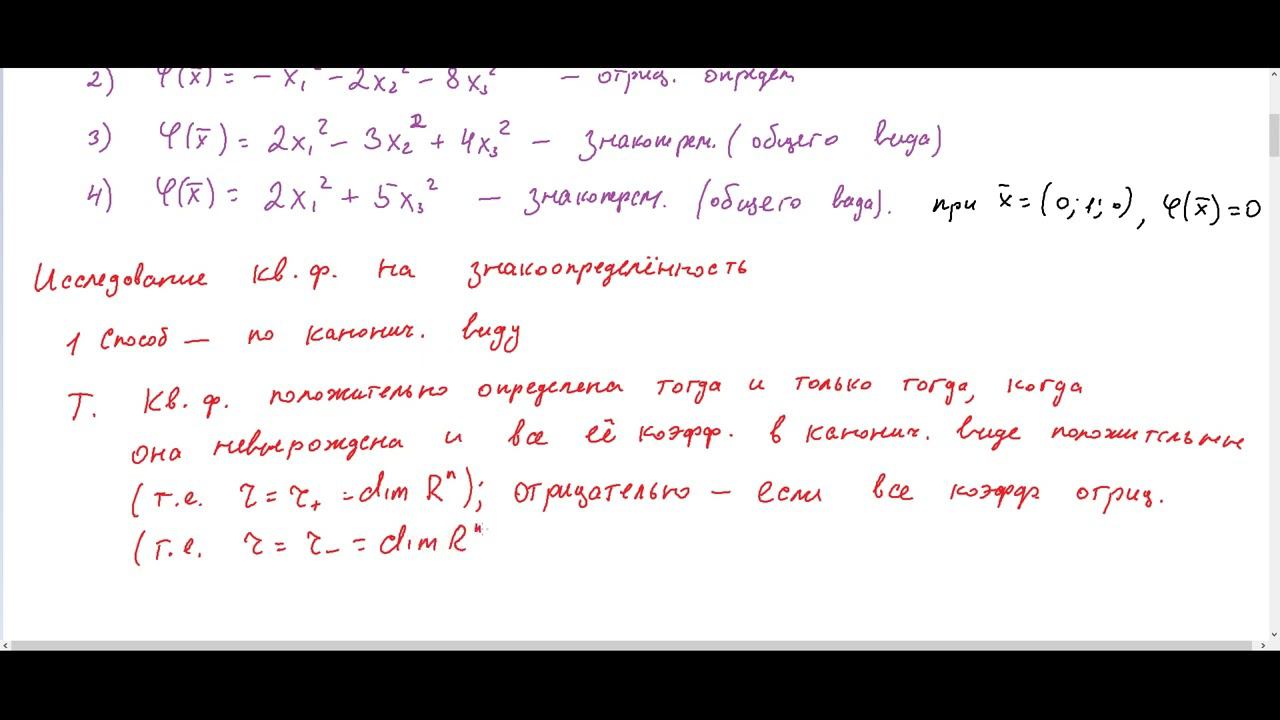 2) φ(x̄) = − x₁² − 2x₂² − 8x₃² — отриц. определ
3) φ(x̄) = 2x₁² − 3x₂² + 4x₃² — знакоперем. (общего вида)
4) φ(x̄) = 2x₁² + 5x₃² — знакоперем. (общего вида). при x̄ = (0; 1; 0), φ(x̄) = 0
Исследование кв. ф. на знакоопределённость
1 способ — по канонич. виду
Т. Кв. ф. положительно определена тогда и только тогда, когда
она невырождена и все её коэфф. в канонич. виде положительные
(т.е. r = r₊ = dim Rⁿ); отрицательно — если все коэфф отриц.
(т.е. r = r₋ = dim Rⁿ